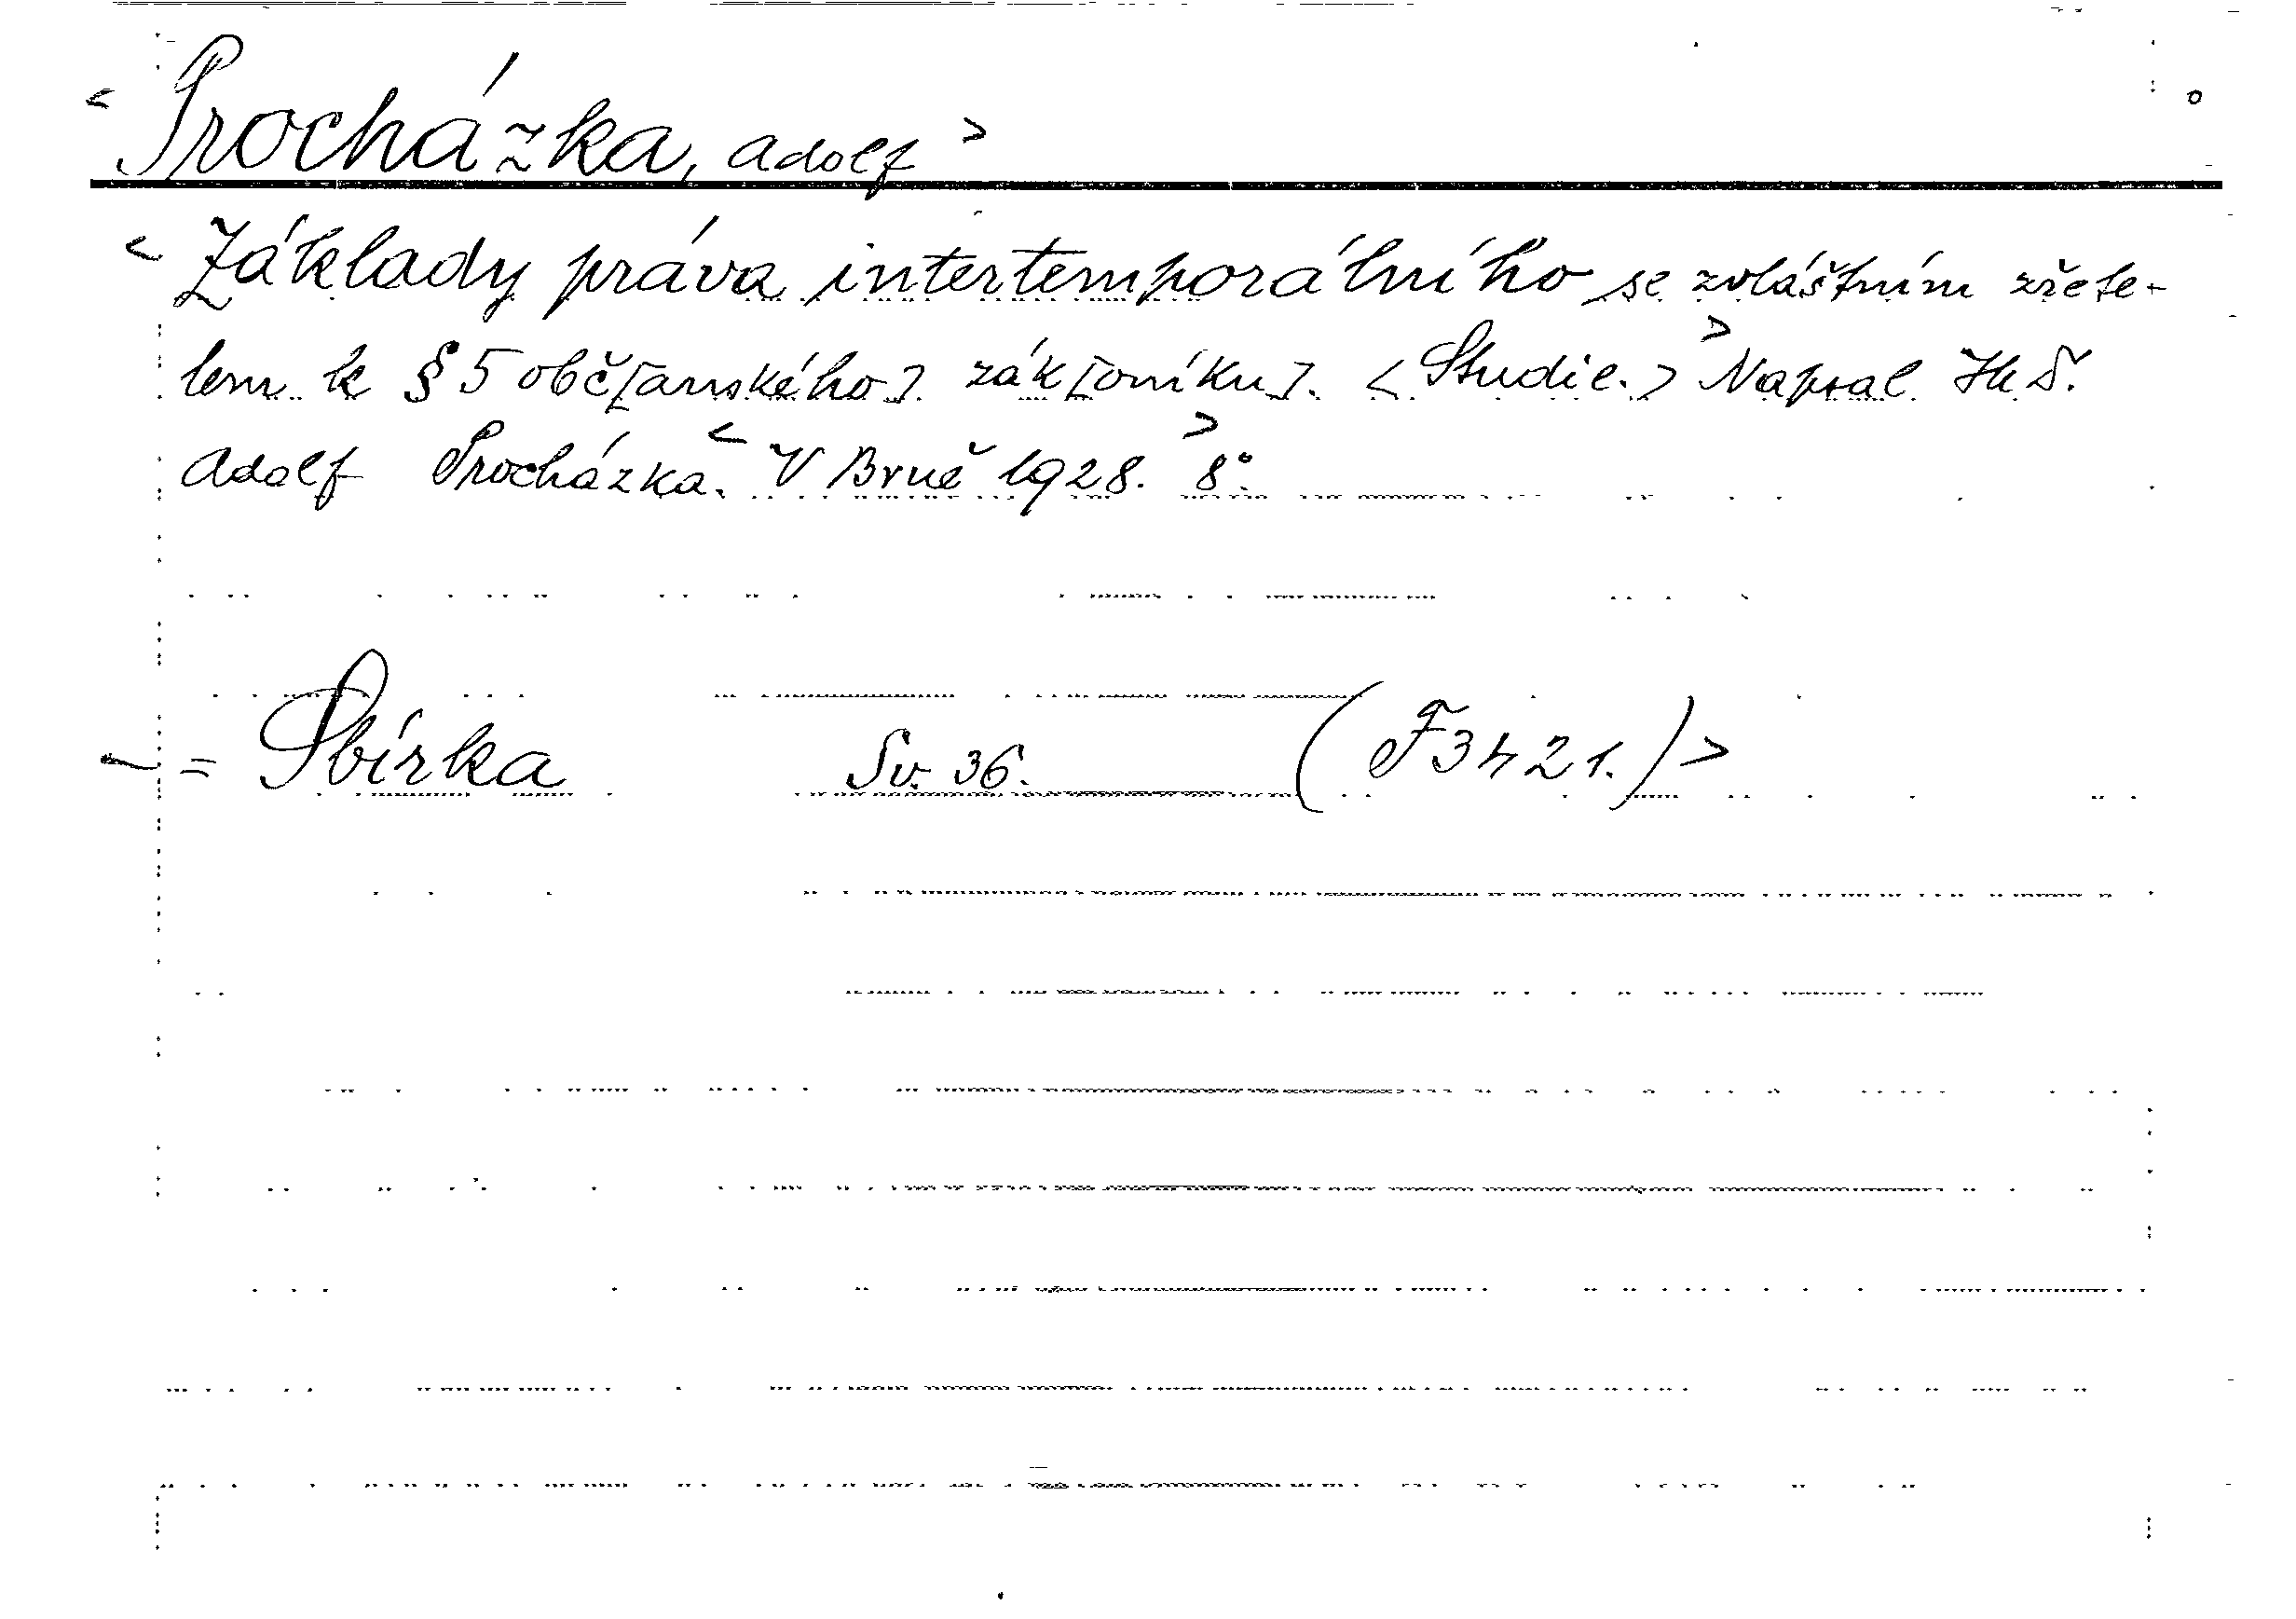 < Procházka, Adolf >
< Základy práva intertemporálního se zvláštním zřete-
lem k § 5 obč[anského] zák[oníku]. < Studie. > > Napsal
Adolf Procházka. < V Brně 1928. > 8°.
= Sbírka Sv. 36. (F 3421.) >